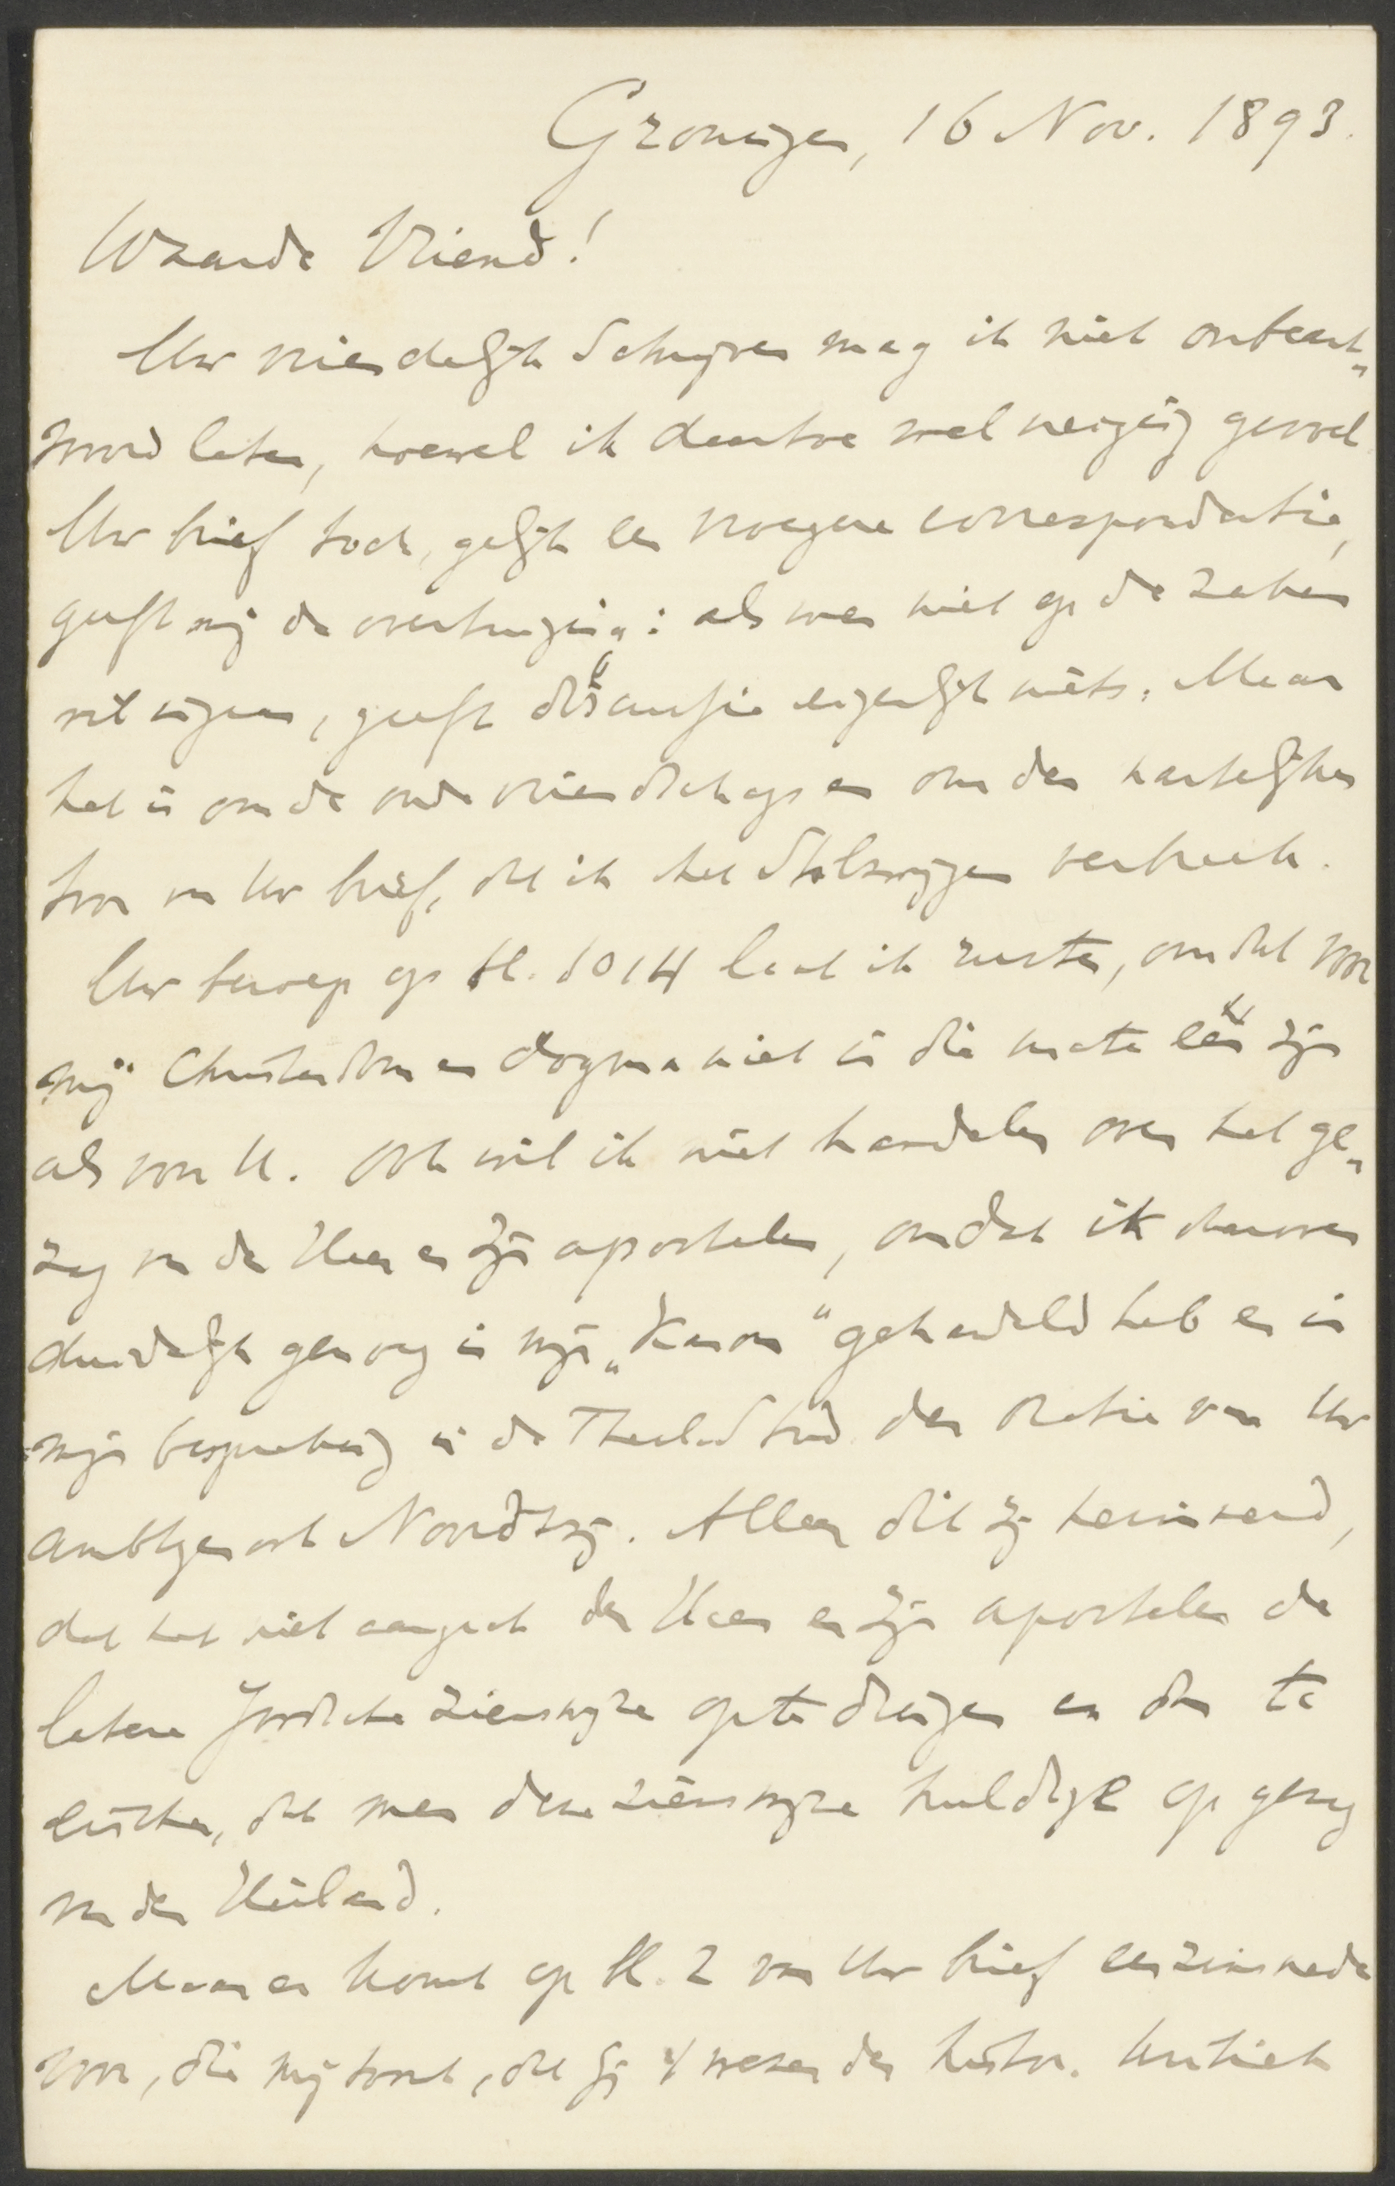 Groningen, 16 Nov. 1893.
Waarde Vriend!
Uw vriendelijk schrijven mag ik niet onbeant„
woord laten, hoewel ik daartoe wel neiging gevoel.
Uw brief toch, gelijk een vroegere correspondentie,
geeft mij de overtuiging: als men niet op de zaken
wil ingaan, geeft discussie eigenlijk niets. Maar
het is om de oude vriendschap en om den hartelijken
toon van Uw brief, dat ik het stilzwijgen verbreek.
Uw beroep op bl. 1014 laat ik rusten, omdat voor
mij Christendom en dogma niet in die mate één zijn
als voor U. Ook wil ik niet handelen over het ge„
zag van den Heer en zijn apostelen, omdat ik daarover
duidelijk genoeg in mijn „Kanon" gehandeld heb en in
mijn bespreking in de Theol. Stud. der oratie van Uw
ambtgenoot Noordtzij. Alleen dit zij herinnerd,
dat het niet aangaat den Heer en zijn apostelen de
latere Joodsche zienswijze op te dringen en dan te
eischen, dat men deze zienswijze huldige op gezag
van den Heiland.
Maar er komt op bl. 2 van Uw brief een zinsnede
voor, die mij toont, dat gij 't wezen der histor. kritiek